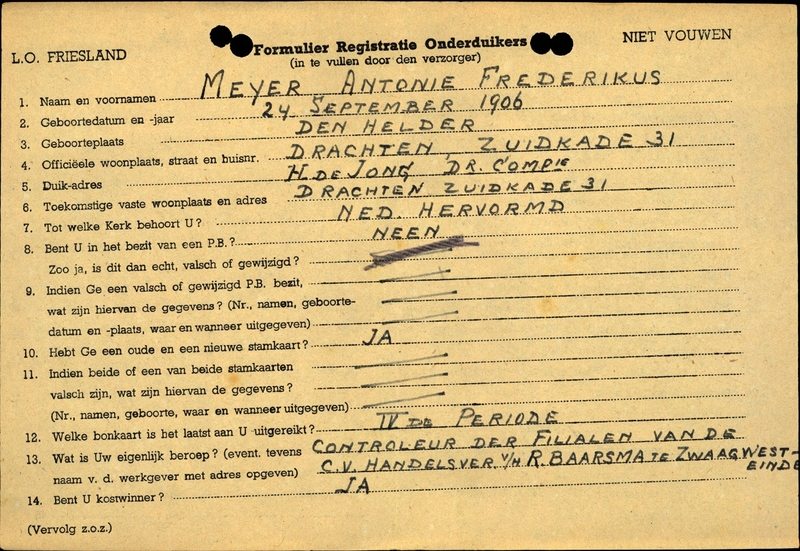 L.O. FRIESLAND
NIET VOUWEN
Formulier Registratie Onderduikers
(in te vullen door den verzorger)
1. Naam en voornamen MEYER ANTONIE FREDERIKUS
2. Geboortedatum en -jaar 24 SEPTEMBER 1906
3. Geboorteplaats DEN HELDER
4. Officiëele woonplaats, straat en huisnr. DRACHTEN, ZUIDKADE 31
5. Duik-adres H. DE JONG, DR. COMPIE
6. Toekomstige vaste woonplaats en adres DRACHTEN ZUIDKADE 31
7. Tot welke Kerk behoort U? NED. HERVORMD
8. Bent U in het bezit van een P.B.? NEEN
Zoo ja, is dit dan echt, valsch of gewijzigd?
9. Indien Ge een valsch of gewijzigd P.B. bezit,
wat zijn hiervan de gegevens? (Nr., namen, geboorte-
datum en -plaats, waar en wanneer uitgegeven)
10. Hebt Ge een oude en een nieuwe stamkaart? JA
11. Indien beide of een van beide stamkaarten
valsch zijn, wat zijn hiervan de gegevens?
(Nr., namen, geboorte, waar en wanneer uitgegeven)
12. Welke bonkaart is het laatst aan U uitgereikt? IV DE PERIODE
13. Wat is Uw eigenlijk beroep? (event. tevens CONTROLEUR DER FILIALEN VAN DE
naam v. d. werkgever met adres opgeven) C.V. HANDELSVER. V/H R. BAARSMA TE ZWAAGWEST-
EINDE
14. Bent U kostwinner? JA
(Vervolg z.o.z.)